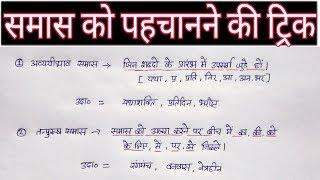 समास को पहचानने की ट्रिक
① अव्ययीभाव समास → जिन शब्दों के प्रारंभ में उपसर्ग रहे हों।
[ यथा, प्र, प्रति, निर, आ, अन, भर ]
उदा० = यथाशक्ति, प्रतिदिन, भरपेट
② तत्पुरुष समास → समास को अलग करने पर बीच में का, की, को
के लिए, में, पर, से निकले।
उदा० = रंगमंच, वनवास, नेत्रहीन